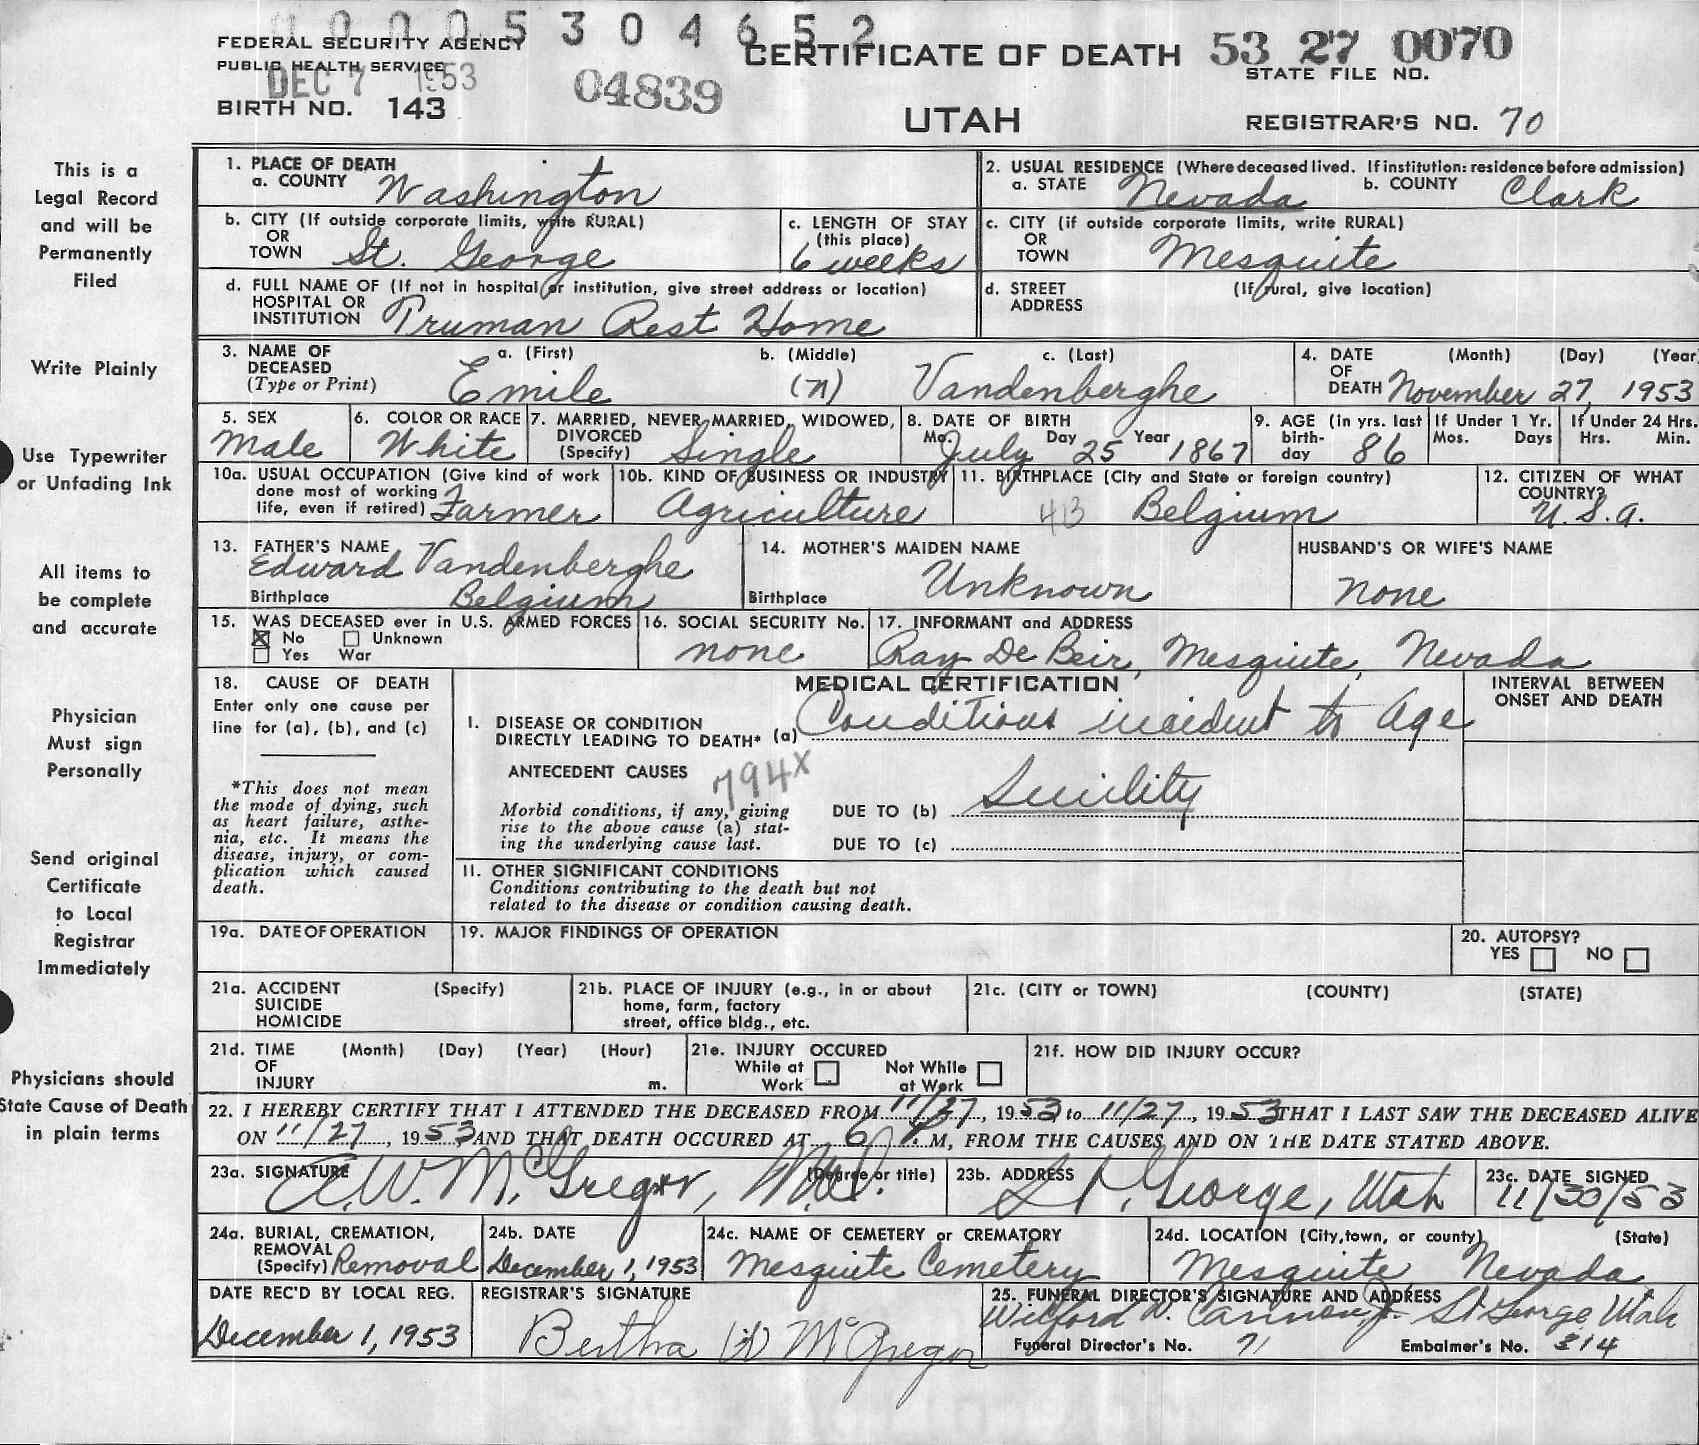 00005304652
FEDERAL SECURITY AGENCY
PUBLIC HEALTH SERVICE
DEC 7 1953
BIRTH NO. 143
04839
CERTIFICATE OF DEATH
UTAH
53 27 0070
STATE FILE NO.
REGISTRAR'S NO. 70
This is a
Legal Record
and will be
Permanently
Filed
Write Plainly
Use Typewriter
or Unfading Ink
All items to
be complete
and accurate
Physician
Must sign
Personally
Send original
Certificate
to Local
Registrar
Immediately
Physicians should
State Cause of Death
in plain terms
1. PLACE OF DEATH
a. COUNTY Washington
2. USUAL RESIDENCE (Where deceased lived. If institution: residence before admission)
a. STATE Nevada b. COUNTY Clark
b. CITY (If outside corporate limits, write RURAL)
OR
TOWN St. George
c. LENGTH OF STAY
(this place)
6 weeks
c. CITY (if outside corporate limits, write RURAL)
OR
TOWN Mesquite
d. FULL NAME OF (If not in hospital or institution, give street address or location)
HOSPITAL OR
INSTITUTION Truman Rest Home
d. STREET (If rural, give location)
ADDRESS
3. NAME OF a. (First) b. (Middle) c. (Last)
DECEASED
(Type or Print) Emile (N) Vandenberghe
4. DATE (Month) (Day) (Year
OF
DEATH November 27, 1953
5. SEX
Male
6. COLOR OR RACE
White
7. MARRIED, NEVER MARRIED, WIDOWED,
DIVORCED
(Specify) Single
8. DATE OF BIRTH
Mo. July Day 25 Year 1867
9. AGE (in yrs. last
birth-
day 86
If Under 1 Yr.
Mos. Days
If Under 24 Hrs.
Hrs. Min.
10a. USUAL OCCUPATION (Give kind of work
done most of working
life, even if retired) Farmer
10b. KIND OF BUSINESS OR INDUSTRY
Agriculture
11. BIRTHPLACE (City and State or foreign country)
Belgium
12. CITIZEN OF WHAT
COUNTRY?
U.S.A.
13. FATHER'S NAME
Edward Vandenberghe
Birthplace Belgium
14. MOTHER'S MAIDEN NAME
Unknown
Birthplace
HUSBAND'S OR WIFE'S NAME
none
15. WAS DECEASED ever in U.S. ARMED FORCES
☒ No ☐ Unknown
☐ Yes War
16. SOCIAL SECURITY No.
none
17. INFORMANT and ADDRESS
Ray De Beir, Mesquite, Nevada
18. CAUSE OF DEATH
Enter only one cause per
line for (a), (b), and (c)
*This does not mean
the mode of dying, such
as heart failure, asthe-
nia, etc. It means the
disease, injury, or com-
plication which caused
death.
MEDICAL CERTIFICATION
INTERVAL BETWEEN
ONSET AND DEATH
I. DISEASE OR CONDITION
DIRECTLY LEADING TO DEATH* (a) Conditions incident to Age
ANTECEDENT CAUSES 794X
Morbid conditions, if any, giving
rise to the above cause (a) stat-
ing the underlying cause last.
DUE TO (b) Senility
DUE TO (c)
II. OTHER SIGNIFICANT CONDITIONS
Conditions contributing to the death but not
related to the disease or condition causing death.
19a. DATE OF OPERATION
19. MAJOR FINDINGS OF OPERATION
20. AUTOPSY?
YES ☐ NO ☐
21a. ACCIDENT (Specify)
SUICIDE
HOMICIDE
21b. PLACE OF INJURY (e.g., in or about
home, farm, factory
street, office bldg., etc.
21c. (CITY or TOWN) (COUNTY) (STATE)
21d. TIME (Month) (Day) (Year) (Hour)
OF
INJURY m.
21e. INJURY OCCURED
While at Work ☐ Not While at Work ☐
21f. HOW DID INJURY OCCUR?
22. I HEREBY CERTIFY THAT I ATTENDED THE DECEASED FROM 11/27, 1953 to 11/27, 1953 THAT I LAST SAW THE DECEASED ALIVE
ON 11/27, 1953 AND THAT DEATH OCCURED AT 6 M, FROM THE CAUSES AND ON THE DATE STATED ABOVE.
23a. SIGNATURE (Degree or title)
A.W. McGregor, M.D.
23b. ADDRESS
St. George, Utah
23c. DATE SIGNED
11/30/53
24a. BURIAL, CREMATION,
REMOVAL
(Specify) Removal
24b. DATE
December 1, 1953
24c. NAME OF CEMETERY or CREMATORY
Mesquite Cemetery
24d. LOCATION (City, town, or county) (State)
Mesquite, Nevada
DATE REC'D BY LOCAL REG.
December 1, 1953
REGISTRAR'S SIGNATURE
Bertha W McGregor
25. FUNERAL DIRECTOR'S SIGNATURE AND ADDRESS
Wilford W. Cannon, Jr. St George, Utah
Funeral Director's No. 71 Embalmer's No. 314